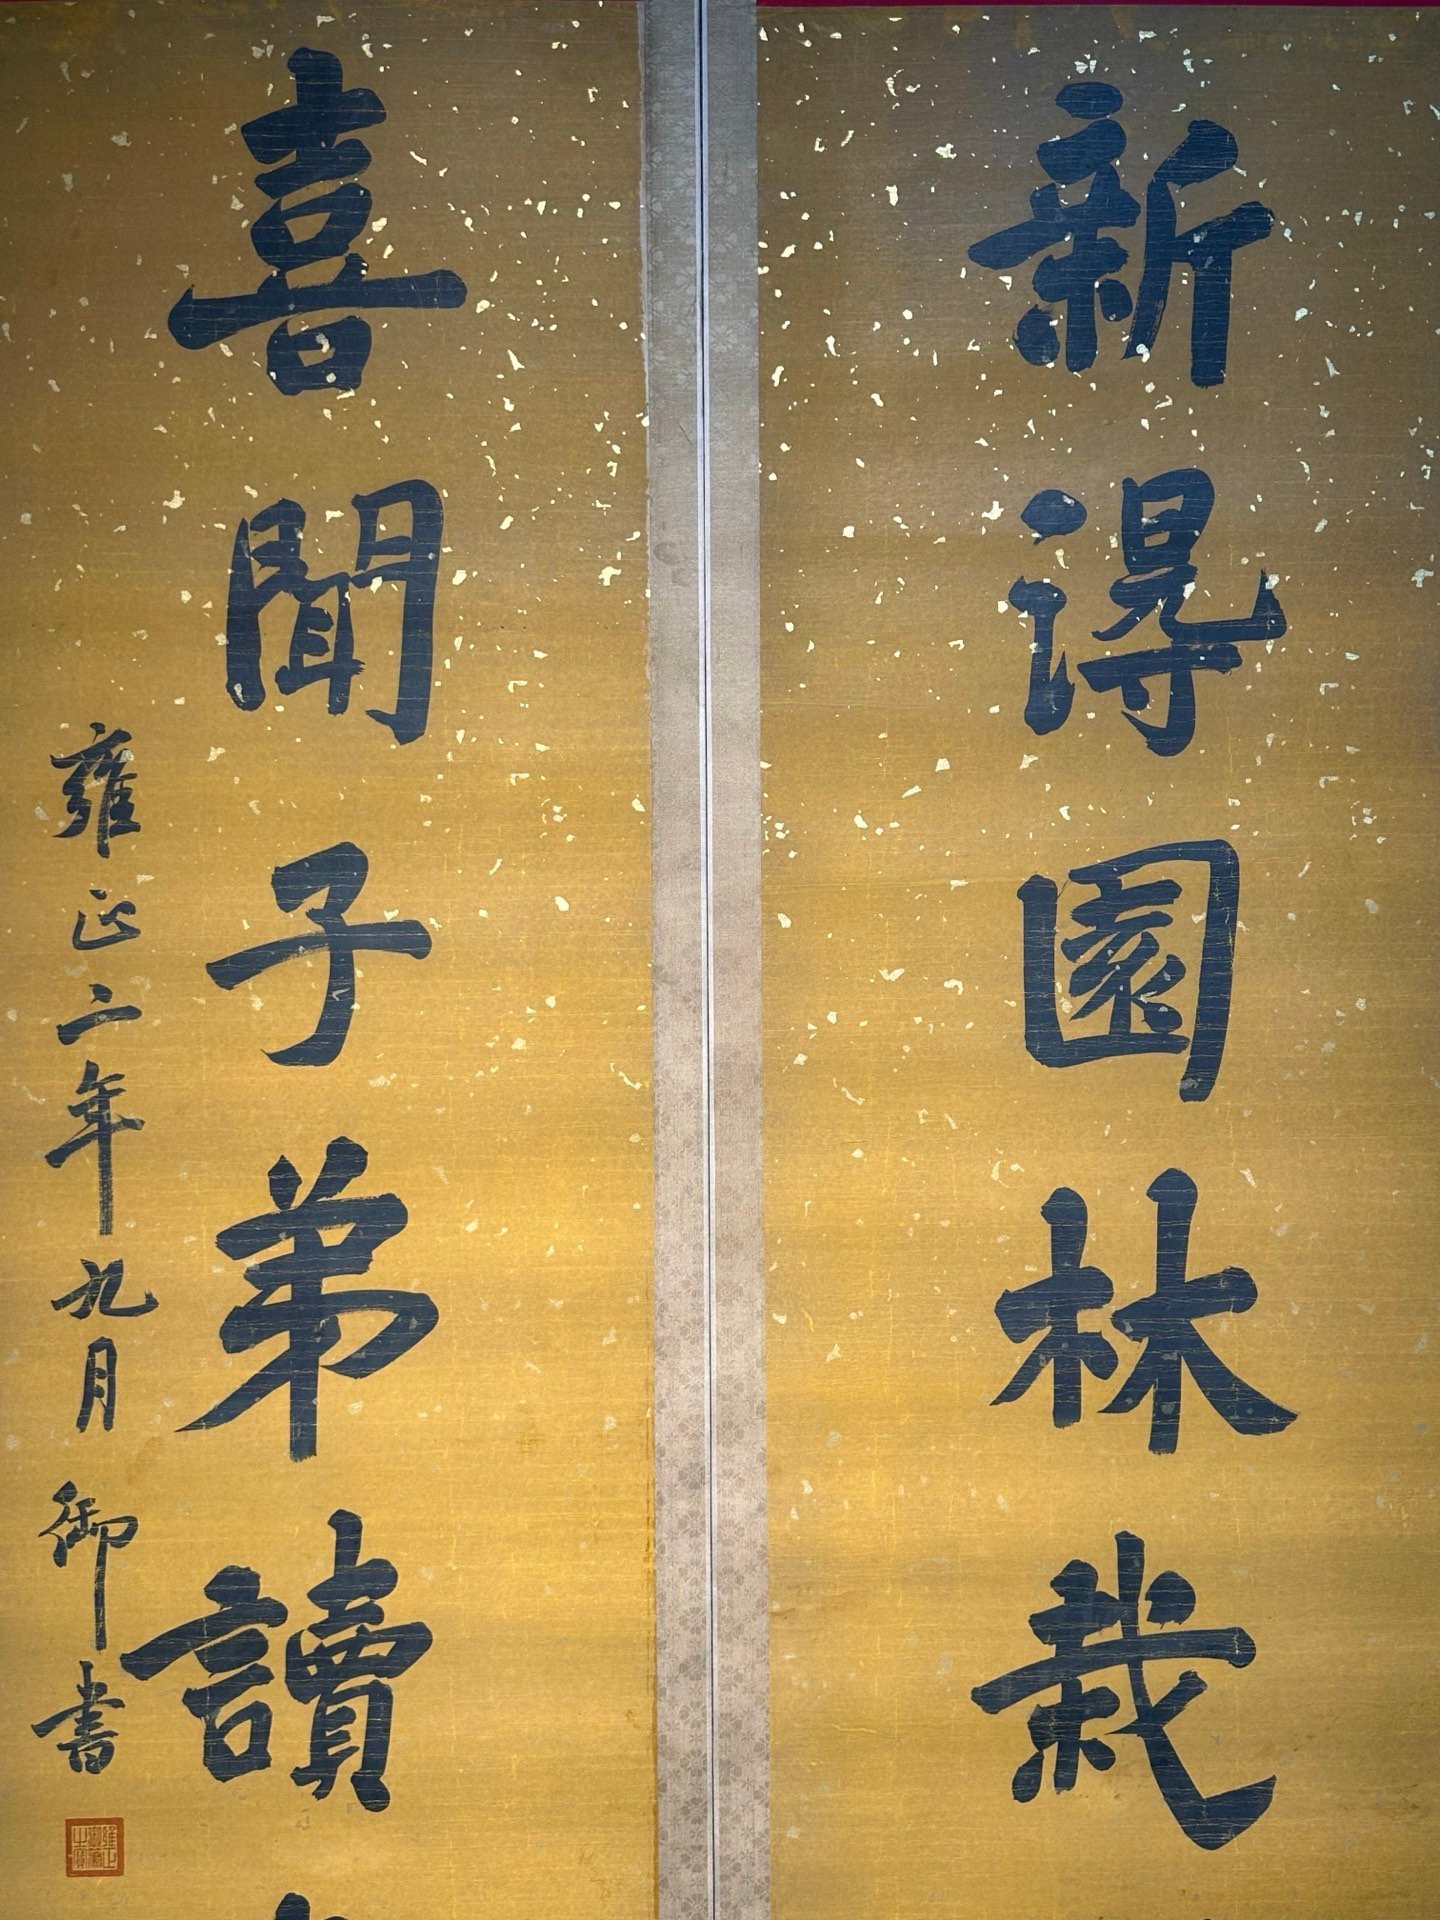 新得園林栽
喜聞子弟讀
雍正二年九月御書
雍正御筆之寶